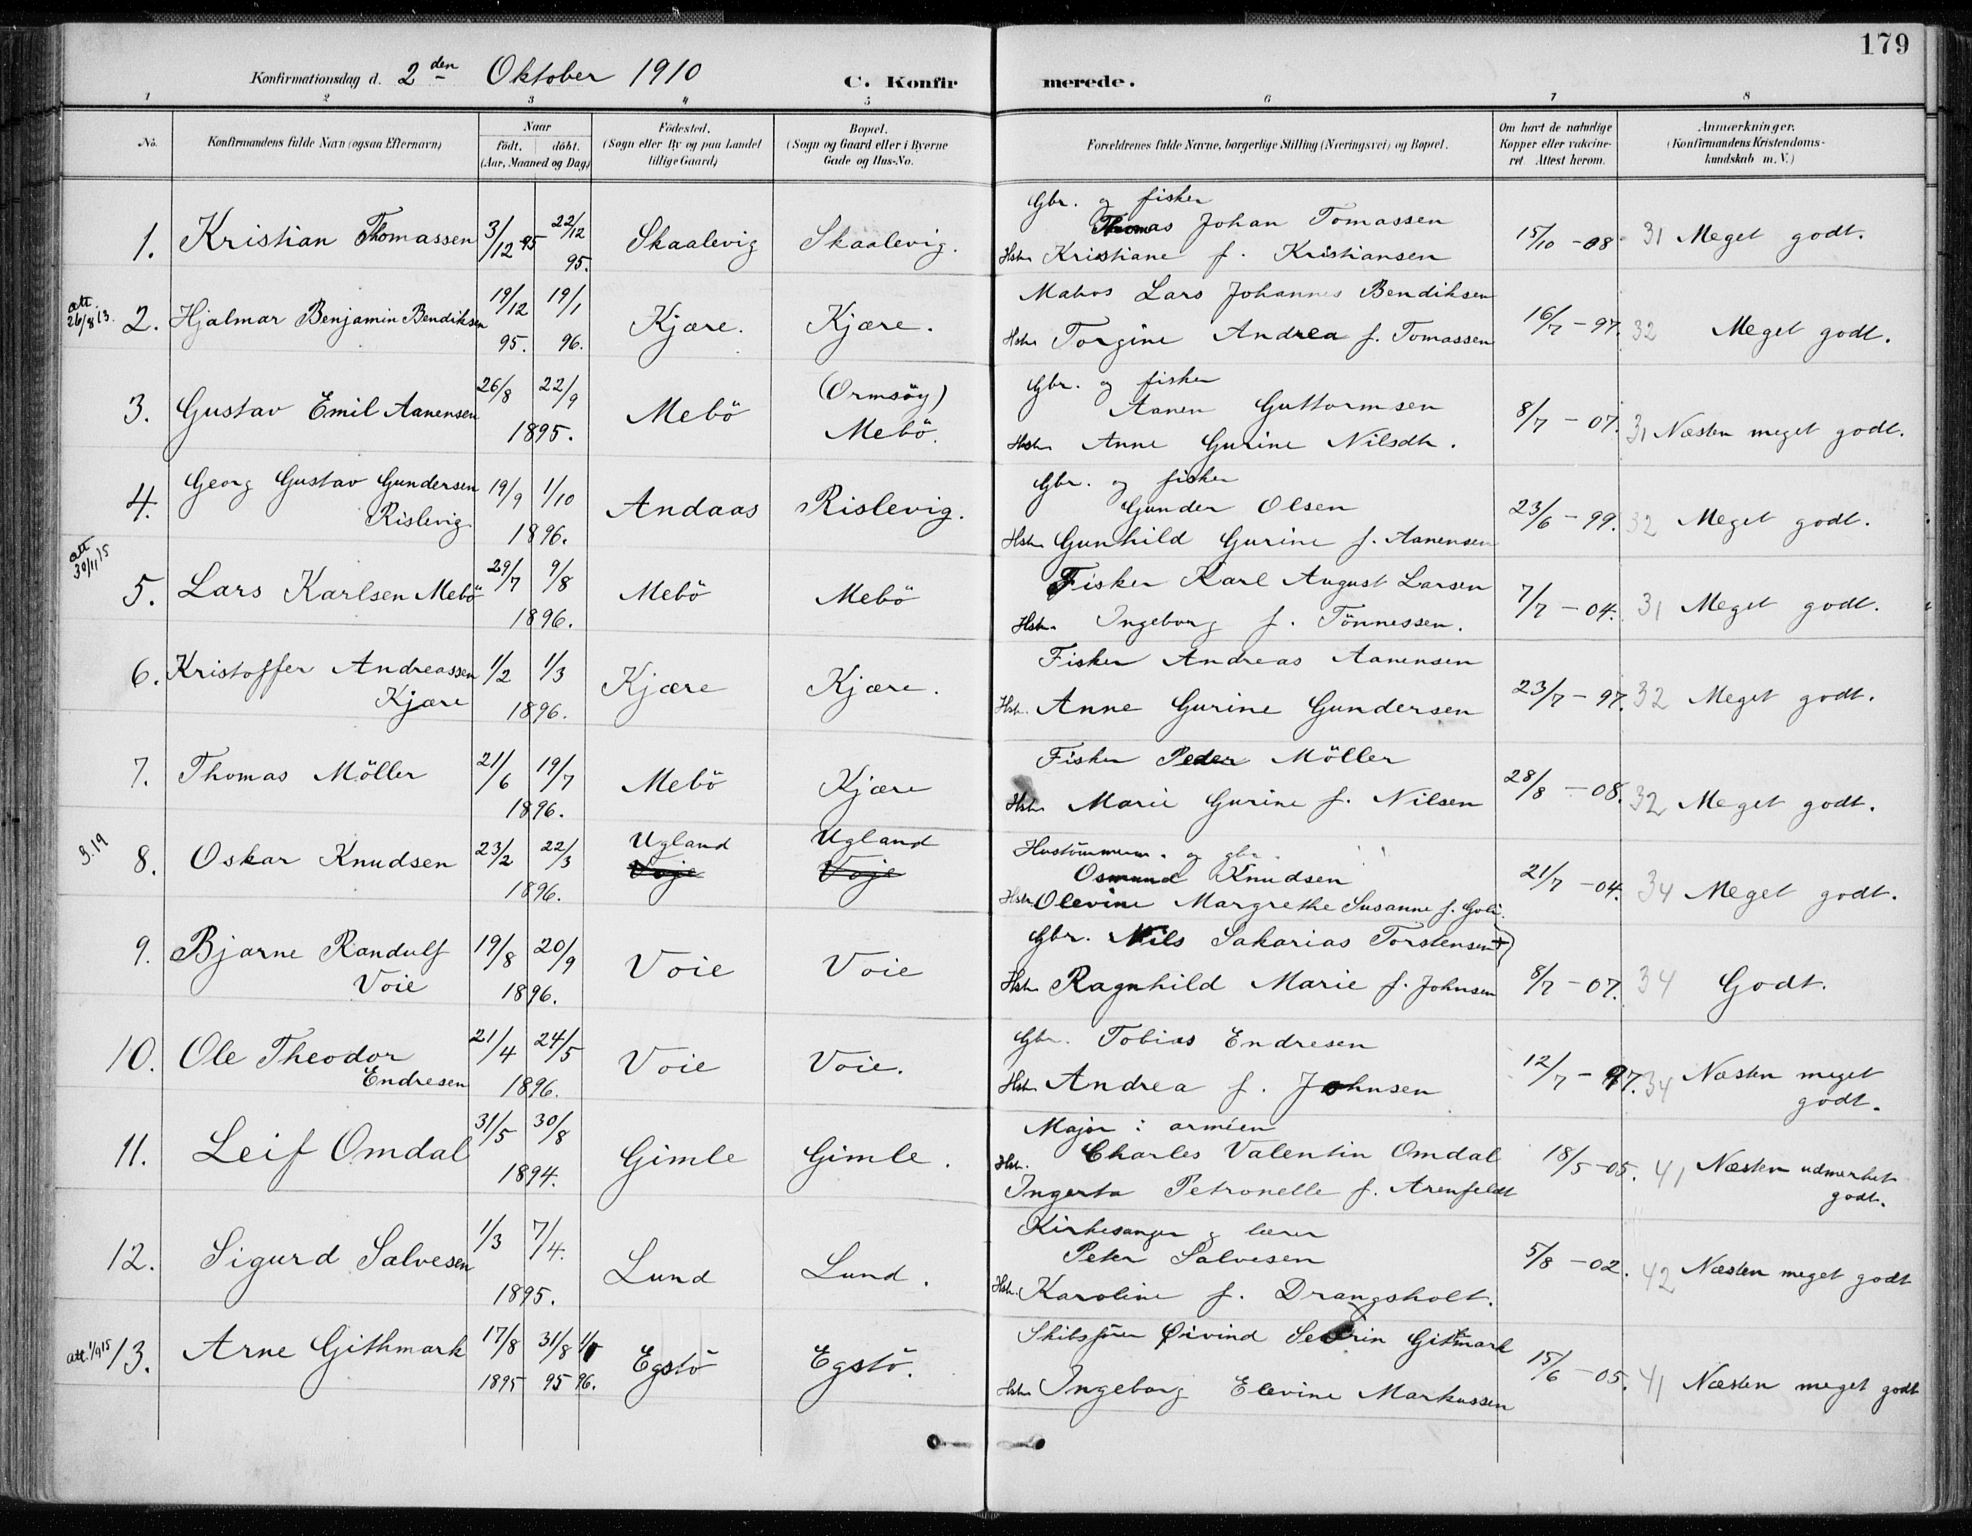 179
Konfirmationsdag d. 2den Oktober 1910
C. Konfirmerede.
1 2 3 4 5 6 7 8
No.
Konfirmandens fulde Navn (ogsaa Efternavn)
Naar
født. døbt.
(Aar, Maaned og Dag)
Fødested.
(Sogn eller By og paa Landet
tillige Gaard)
Bopæl.
(Sogn og Gaard eller i Byerne
Gade og Hus-No.
Forældrenes fulde Navne, borgerlige Stilling (Næringsvei) og Bopæl.
Om havt de naturlige
Kopper eller vakcine-
ret. Attest herom.
Anmærkninger.
(Konfirmandens Kristendoms-
kundskab m. V.)
Gbr. og fisker
1. Kristian Thomassen 3/12 95 22/12 95. Skaalevig Skaalevig. Thomas Johan Tomassen 15/10 - 08 31 Meget godt.
Hstr. Kristiane f. Kristiansen
att. 26/8 13. 2. Hjalmar Benjamin Bendiksen 19/12 95. 19/1 96. Kjære. Kjære. Matros Lars Johannes Bendiksen 16/7 - 97. 32 Meget godt.
Hstr. Torgine Andrea f. Tomassen
Gbr. og fisker
3. Gustav Emil Aanensen 26/8 22/9 1895. Mebö (Ormsöy) Mebö. Aanen Guttormsen 8/7 - 07. 31 Næsten meget godt.
Hstr. Anne Gurine Nilsdtr.
Gbr. og fisker
4. Georg Gustav Gundersen Rislevig 19/9 1/10 1896. Andaas Rislevig. Gunder Olsen 23/6 - 99. 32 Meget godt.
Hstr. Gunhild Gurine f. Aanensen
att 30/11 15 5. Lars Karlsen Mebö 29/7 9/8 1896. Mebö Mebö Fisker Karl August Larsen 7/7 - 04. 31 Meget godt.
Hstr. Ingeborg f. Tönnessen.
6. Kristoffer Andreassen Kjære 1/2 1/3 1896. Kjære Kjære. Fisker Andreas Aanensen 23/7 - 97. 32 Meget godt.
Hstr. Anne Gurine Gundersen
7. Thomas Möller 21/6 19/7 1896. Mebö Kjære Fisker Peder Möller 28/8 - 08. 32 Meget godt.
Hstr. Marie Gurine f. Nilsen
9.19 8. Oskar Knudsen 23/2 22/3 1896. Ugland Voje Ugland Voje Hustömmerm. og gbr.
Osmund Knudsen 21/7 - 04. 34 Meget godt.
Hstr. Olevine Margrethe Susanne f. Goli.
9. Bjarne Randulf Voie 19/8 20/9 1896. Voie Voie Gbr. Nils Sakarias Torstensen (+) 8/7 - 07. 34 Godt.
Hstr. Ragnhild Marie f. Johnsen
10. Ole Theodor Endresen 21/4 24/5 1896. Voie Voie. Gbr. Tobias Endresen 12/7 - 97. 34 Næsten meget godt.
Hstr. Andrea f. Johnsen
Major i arméen
11. Leif Omdal 31/5 30/8 1894. Gimle Gimle. Charles Valentin Omdal 18/5 - 05. 41 Næsten udmerket godt.
Hstr. Ingerta Petronelle f. Arenfeldt
Kirkesanger og lærer
12. Sigurd Salvesen 1/3 7/4. 1895. Lund Lund. Peter Salvesen 5/8 - 02. 42 Næsten meget godt
Hstr. Karoline f. Drangsholt.
att. 1/9 15 13. Arne Githmark 17/8 1895 31/8 95 96. Egstö Egstö. Skibsfører Øivind Severin Gitmark 15/6 - 05. 41 Næsten meget godt
Hstr. Ingeborg Elevine Markussen